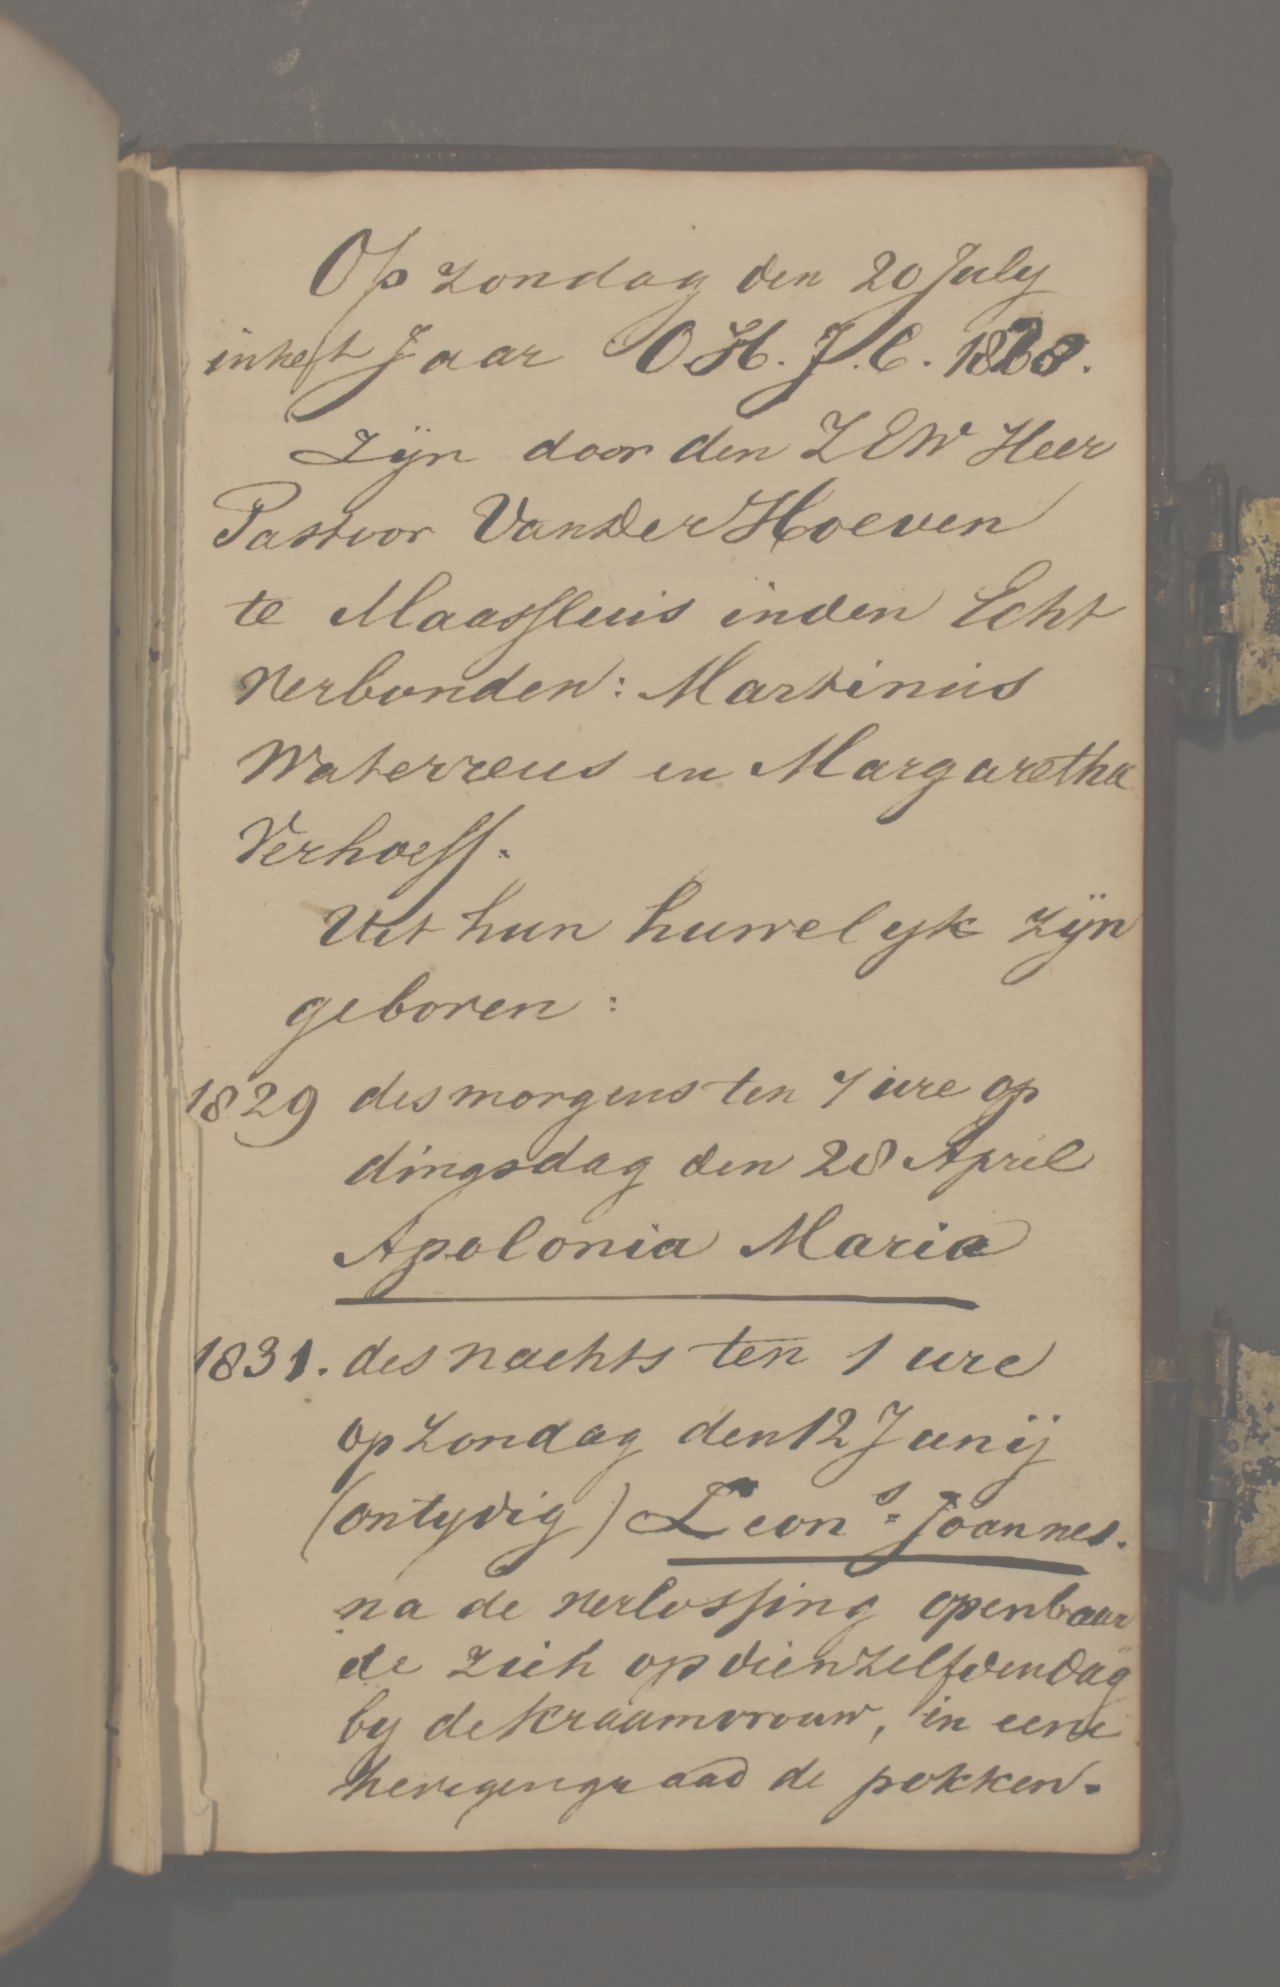 Op zondag den 20 July
in het Jaar O H. J. C. 1828.
zÿn door den Z E W Heer
Pastoor Van Der Hoeven
te Maassluis in den Echt
verbonden: Martinus
Waterreus en Margaretha
Verhoeff.
Uit hun huwelyk zÿn
geboren:
1829 des morgens ten 7 ure op
dingsdag den 28 April
Apolonia Maria
1831. des nachts ten 1 ure
op zondag den 12 Junij
(ontydig) Leons Joannes.
na de verlossing openbaar
de zich op dienzelfden dag
by de kraamvrouw, in eene
hevigen graad de pokken.